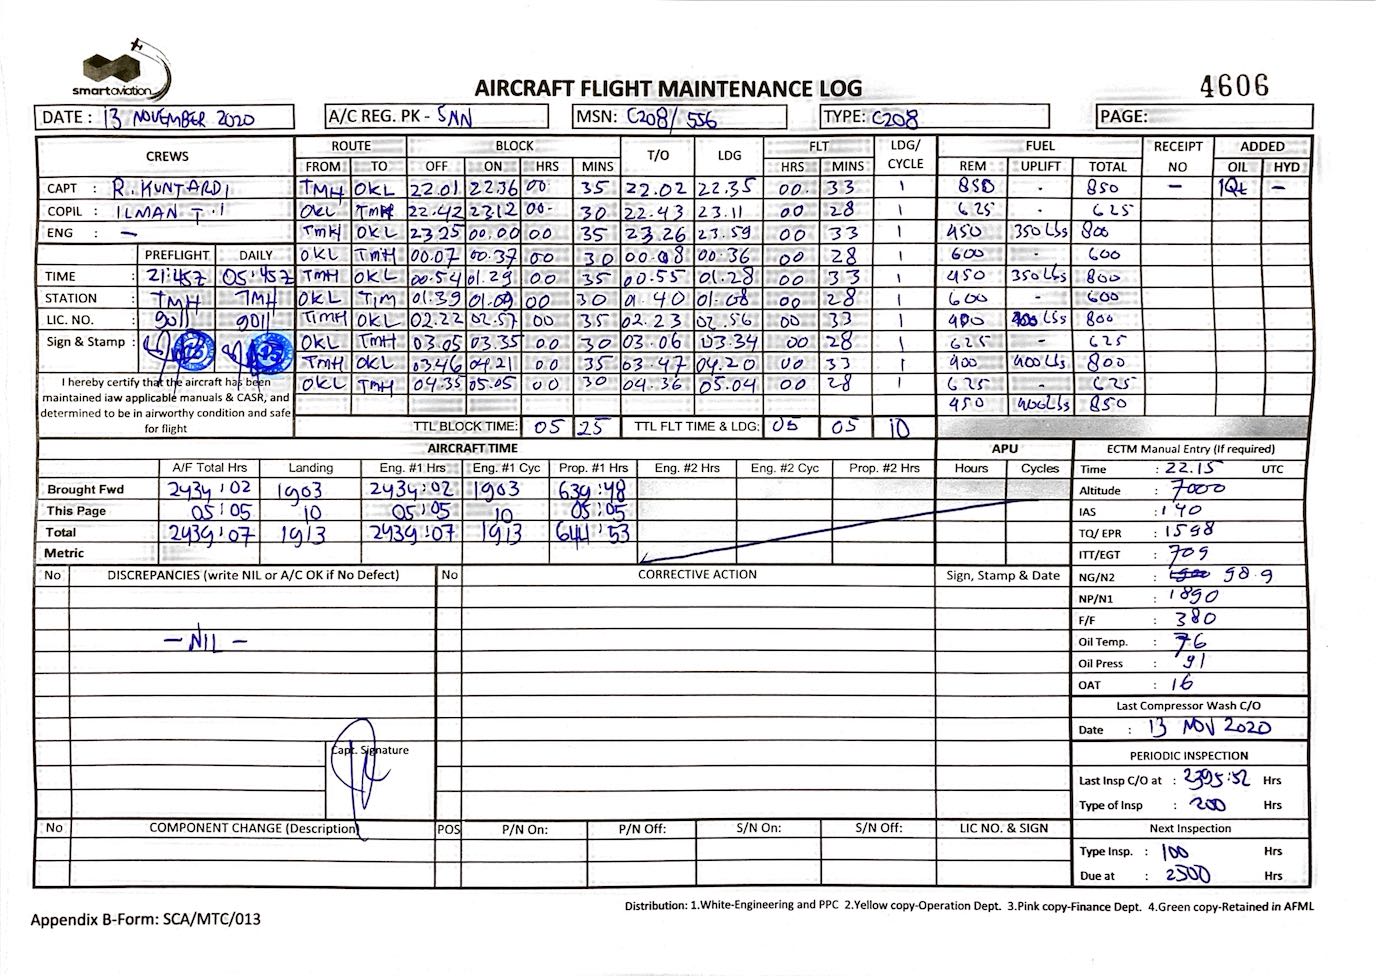 smartaviation
AIRCRAFT FLIGHT MAINTENANCE LOG
4606
DATE : 13 NOVEMBER 2020 A/C REG. PK - SNN MSN: C208/556 TYPE: C208 PAGE:
CREWS ROUTE BLOCK T/O LDG FLT LDG/ CYCLE FUEL RECEIPT NO ADDED
FROM TO OFF ON HRS MINS HRS MINS REM UPLIFT TOTAL OIL HYD
CAPT : R. KUNTARDI TMH OKL 22.01 22.36 00 35 22.02 22.35 00. 33 1 850 - 850 - 1Qt -
COPIL : ILMAN T.I OKL TMH 22.42 23.12 00- 30 22.43 23.11 00 28 1 625 - 625
ENG : - TMH OKL 23.25 00.00 00 35 23.26 23.59 00 33 1 450 350 Lbs 800
PREFLIGHT DAILY OKL TMH 00.07 00.37 00 30 00.08 00.36 00 28 1 600 - 600
TIME : 21:45Z 05:45Z TMH OKL 00.54 01.29 00 35 00.55 01.28 00 33 1 450 350 Lbs 800
STATION : TMH TMH OKL 01.39 00 30 01.40 00 28 1 600 - 600
LIC. NO. : 9011 9011 TMH OKL 02.22 02.57 00 35 02.23 02.56 00 33 1 400 Lbs 800
Sign & Stamp : OKL TMH 03.05 03.35 00 30 03.06 03.34 00 28 1 625 - 625
TMH OKL 03.46 04.21 00 35 03.47 04.20 00 33 1 400 Lbs 800
OKL TMH 04.35 05.05 00 30 04.36 05.04 00 28 1 625 - 625
450 400 Lbs 850
I hereby certify that the aircraft has been
maintained iaw applicable manuals & CASR, and
determined to be in airworthy condition and safe
for flight
TTL BLOCK TIME: 05 25 TTL FLT TIME & LDG: 05 05 10
AIRCRAFT TIME APU
A/F Total Hrs Landing Eng. #1 Hrs Eng. #1 Cyc Prop. #1 Hrs Eng. #2 Hrs Eng. #2 Cyc Prop. #2 Hrs Hours Cycles
Brought Fwd 2434:02 1903 2434:02 1903 639:48
This Page 05:05 10 05:05 10 05:05
Total 2439:07 1913 2439:07 1913 644:53
Metric
ECTM Manual Entry (If required)
Time : 22.15 UTC
Altitude : 7000
IAS : 140
TQ/ EPR : 1598
ITT/EGT : 709
NG/N2 : 98.9
NP/N1 : 1890
F/F : 380
Oil Temp. : 76
Oil Press : 91
OAT : 16
Last Compressor Wash C/O
Date : 13 NOV 2020
PERIODIC INSPECTION
Last Insp C/O at : 2395:52 Hrs
Type of Insp : 200 Hrs
Next Inspection
Type Insp. : 100 Hrs
Due at : 2500 Hrs
No DISCREPANCIES (write NIL or A/C OK if No Defect) No CORRECTIVE ACTION Sign, Stamp & Date
- NIL -
Capt. Signature
No COMPONENT CHANGE (Description) POS P/N On: P/N Off: S/N On: S/N Off: LIC NO. & SIGN
Distribution: 1.White-Engineering and PPC 2.Yellow copy-Operation Dept. 3.Pink copy-Finance Dept. 4.Green copy-Retained in AFML
Appendix B-Form: SCA/MTC/013